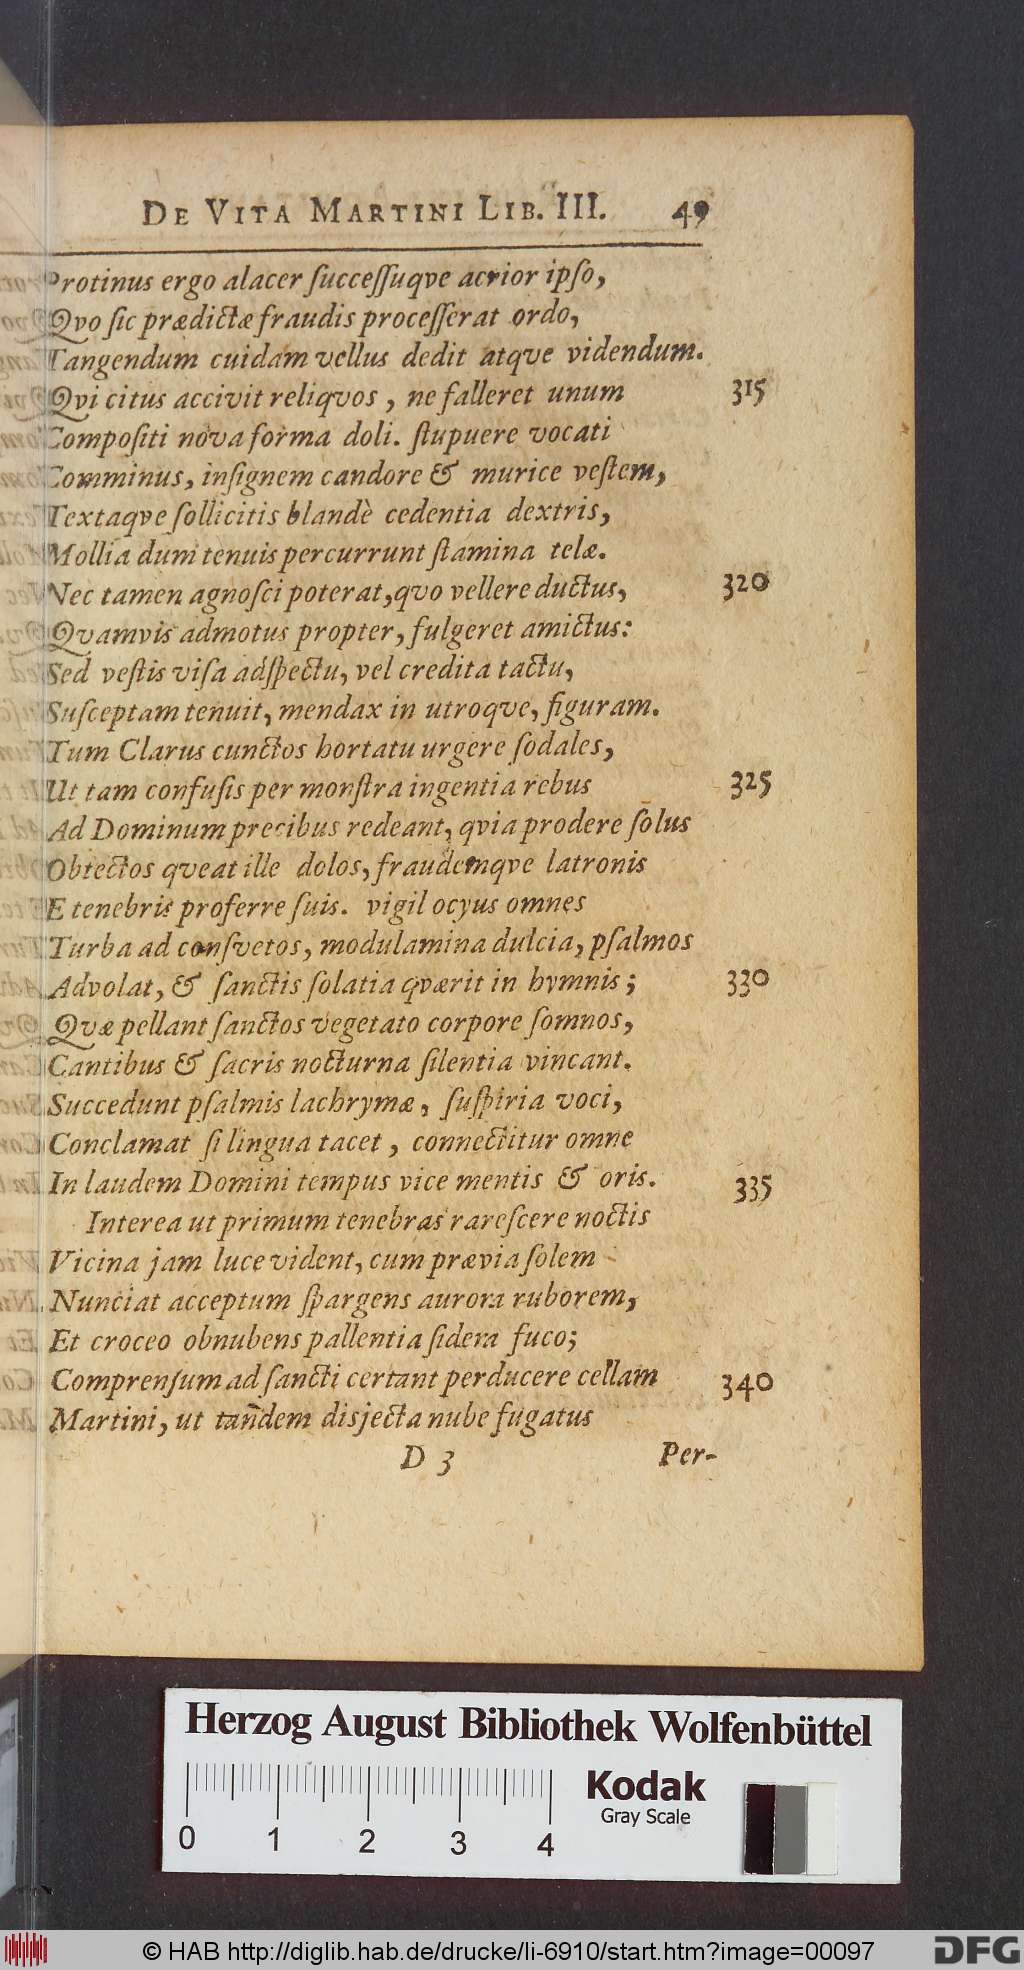 DE VITA MARTINI LIB. III. 49
Protinus ergo alacer ſucceſſuqve acrior ipſo,
Qvo ſic prædictæ fraudis proceſſerat ordo,
Tangendum cuidam vellus dedit atqve videndum.
Qvi citus accivit reliqvos, ne falleret unum 315
Compoſiti nova forma doli. ſtupuere vocati
Comminus, inſignem candore & murice veſtem,
Textaqve ſollicitis blandè cedentia dextris,
Mollia dum tenuis percurrunt ſtamina telæ.
Nec tamen agnoſci poterat, qvo vellere ductus, 320
Qvamvis admotus propter, fulgeret amictus:
Sed veſtis viſa adſpectu, vel credita tactu,
Suſceptam tenuit, mendax in utroqve, figuram.
Tum Clarus cunctos hortatu urgere ſodales,
Ut tam confuſis per monſtra ingentia rebus 325
Ad Dominum precibus redeant, qvia prodere ſolus
Obtectos qveat ille dolos, fraudemqve latronis
E tenebris proferre ſuis. vigil ocyus omnes
Turba ad conſvetos, modulamina dulcia, pſalmos
Advolat, & ſanctis ſolatia qværit in hymnis; 330
Qvæ pellant ſanctos vegetato corpore ſomnos,
Cantibus & ſacris nocturna ſilentia vincant.
Succedunt pſalmis lachrymæ, ſuſpiria voci,
Conclamat ſi lingua tacet, connectitur omne
In laudem Domini tempus vice mentis & oris. 335
Interea ut primum tenebras rareſcere noctis
Vicina jam luce vident, cum prævia ſolem
Nunciat acceptum ſpargens aurora ruborem,
Et croceo obnubens pallentia ſidera fuco;
Comprenſum ad ſancti certant perducere cellam 340
Martini, ut tandem disjecta nube fugatus
D 3 Per-
Herzog August Bibliothek Wolfenbüttel
Kodak
Gray Scale
0 1 2 3 4
© HAB http://diglib.hab.de/drucke/li-6910/start.htm?image=00097
DFG